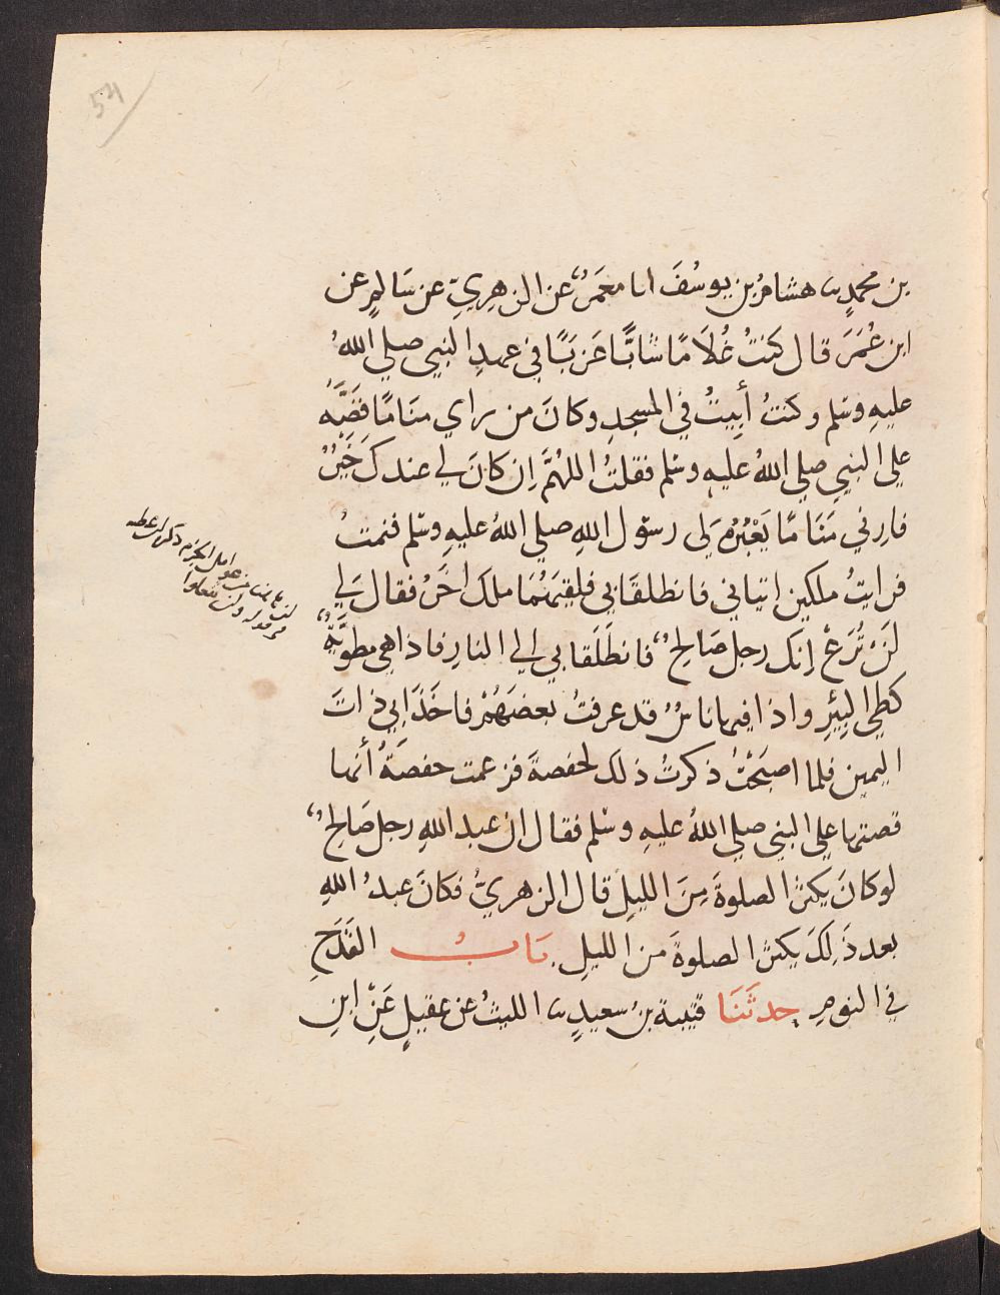 54
بن محمدٍ ثنا هشامُ بن يوسُفَ انا معمَرٌ عن الزهِريِّ عن سَالمٍ عن
ابن عُمَرَ قال كنتُ غُلَامًا شابًّا عَزَبًا في عهدِ النبي صلي اللهُ
عليهِ وسلم وكنتُ أَبِيتُ في المسجدِ وكانَ من راي منَامًا قصَّهُ
علي النبيِ صلي اللهُ عليهِ وسلم فقلتُ اللهُمَّ اِن كانَ لي عندكَ خَيْرٌ
فارِني مَنَامًا يَعْبُرُهُ لِي رسول اللهِ صلي اللهُ عليهِ وسلم فنمتُ
فرايتُ ملكين اتياني فانطلقَا بي فلقيَهُمَا ملك اخَرُ فقال لِي
لَنْ تُرَعْ اِنك رجل صَالحٌ فانطَلَقا بي الي النارِ فاذا هي مطوِيَّةٌ
كطيِ البِئرِ واذا فيها ناسٌ قد عرفتُ بعضَهُمْ فاخَذَا بِي ذاتَ
اليمينِ فلما اصبَحْتُ ذكرتُ ذلك لحفصةَ فزعمت حفصَةُ أنها
قصتها علي النبي صلي اللهُ عليهِ وسلم فقال ان عبد اللهِ رجل صَالحٌ
لو كانَ يكثرُ الصلوةَ مِنَ الليلِ قال الزهريُّ فكانَ عبدُ اللهِ
بعد ذَلِكَ يكثرُ الصلوةَ من الليلِ بَابُ القَدَحِ
في النومِ حدثَنَا قتيبة بنُ سعيدٍ ثنا الليثُ عن عقيلٍ عَنِ ابنِ